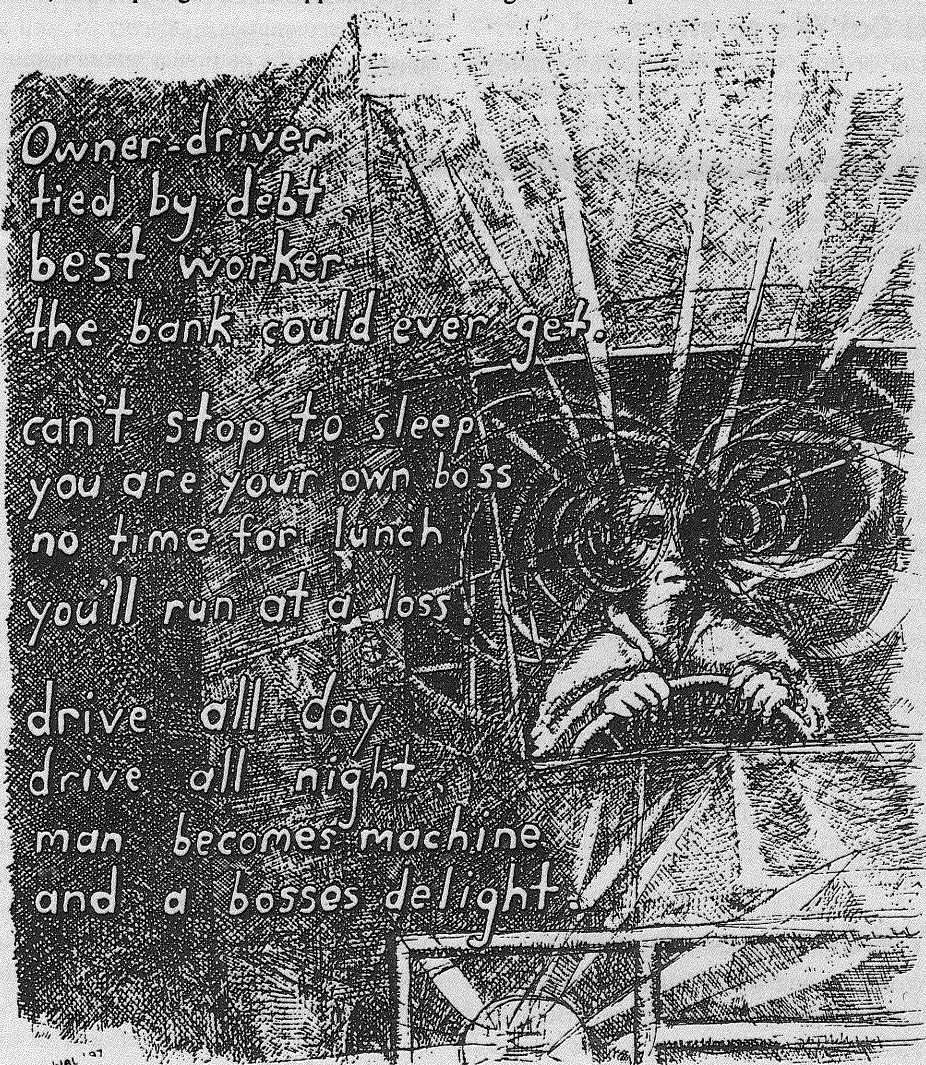 Owner-driver
tied by debt
best worker
the bank could ever get.
can't stop to sleep
you are your own boss
no time for lunch
you'll run at a loss!
drive all day
drive all night.
man becomes machine
and a bosses delight.
WAL '97